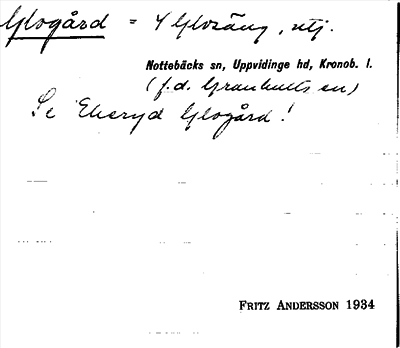 Glogård = 4 Glosäng, utj.
Nottebäcks sn, Uppvidinge hd, Kronob. l.
(f.d. Granhults sn)
Se Ekeryd Glogård!
FRITZ ANDERSSON 1934